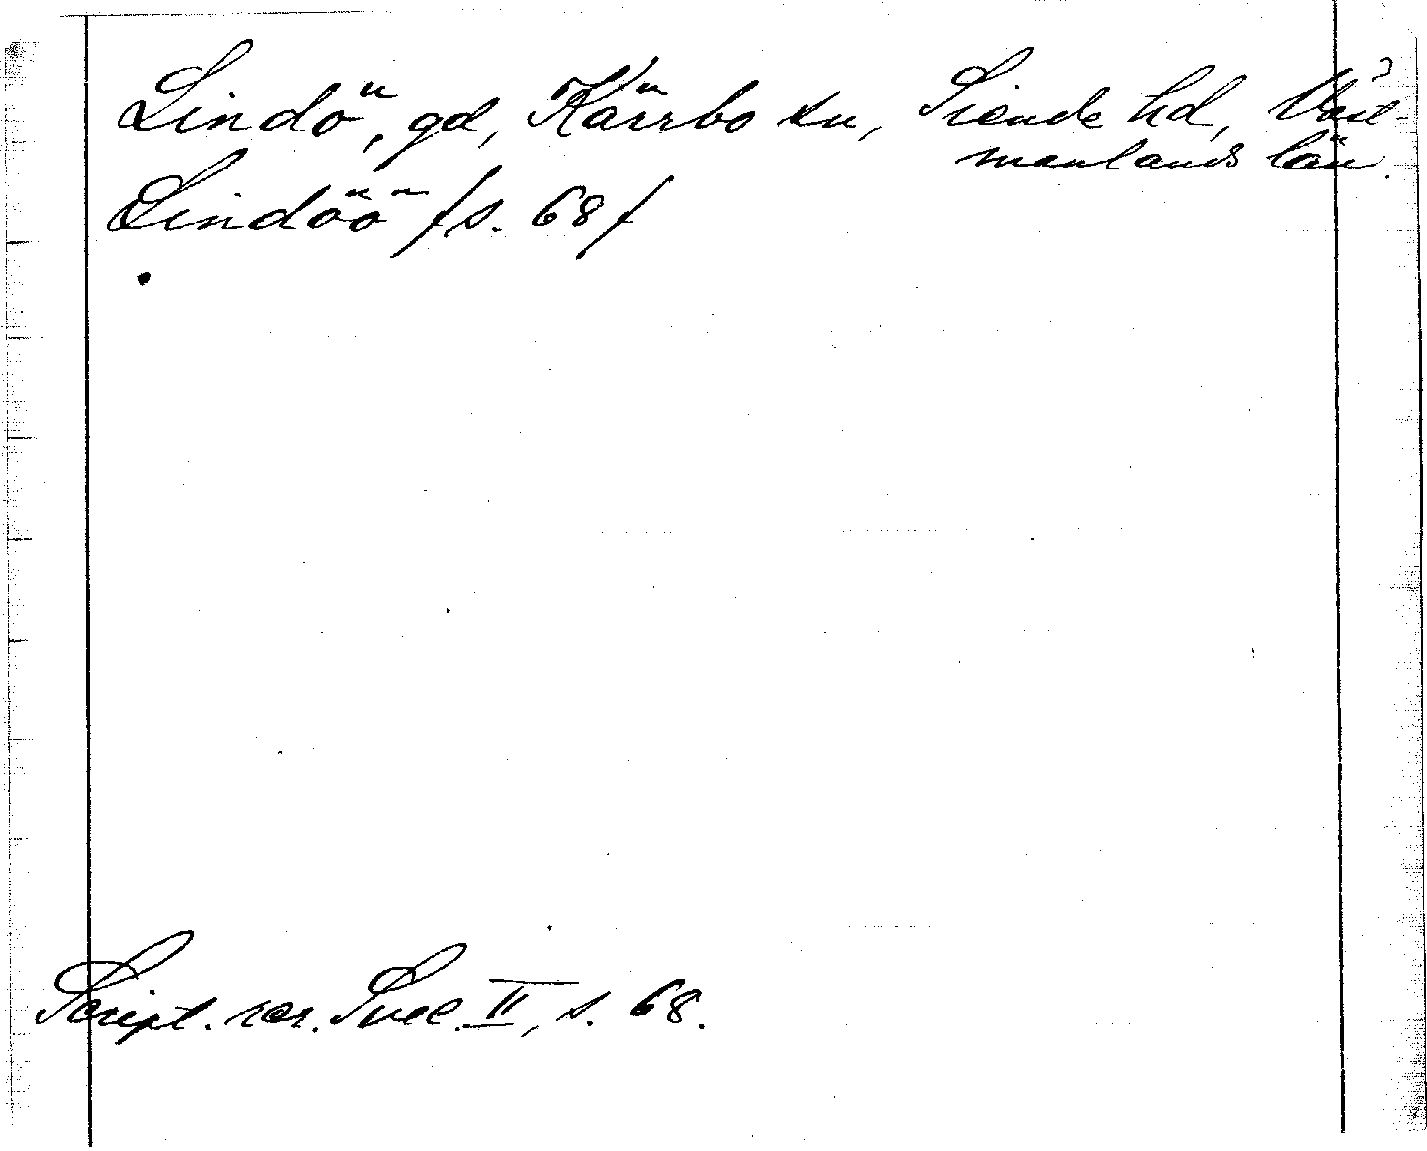 Lindö, gd, Kärrbo sn, Siende hd, Väst-
manlands län.
Lindöö /s. 68/
Script. rer. Suec. II, s. 68.